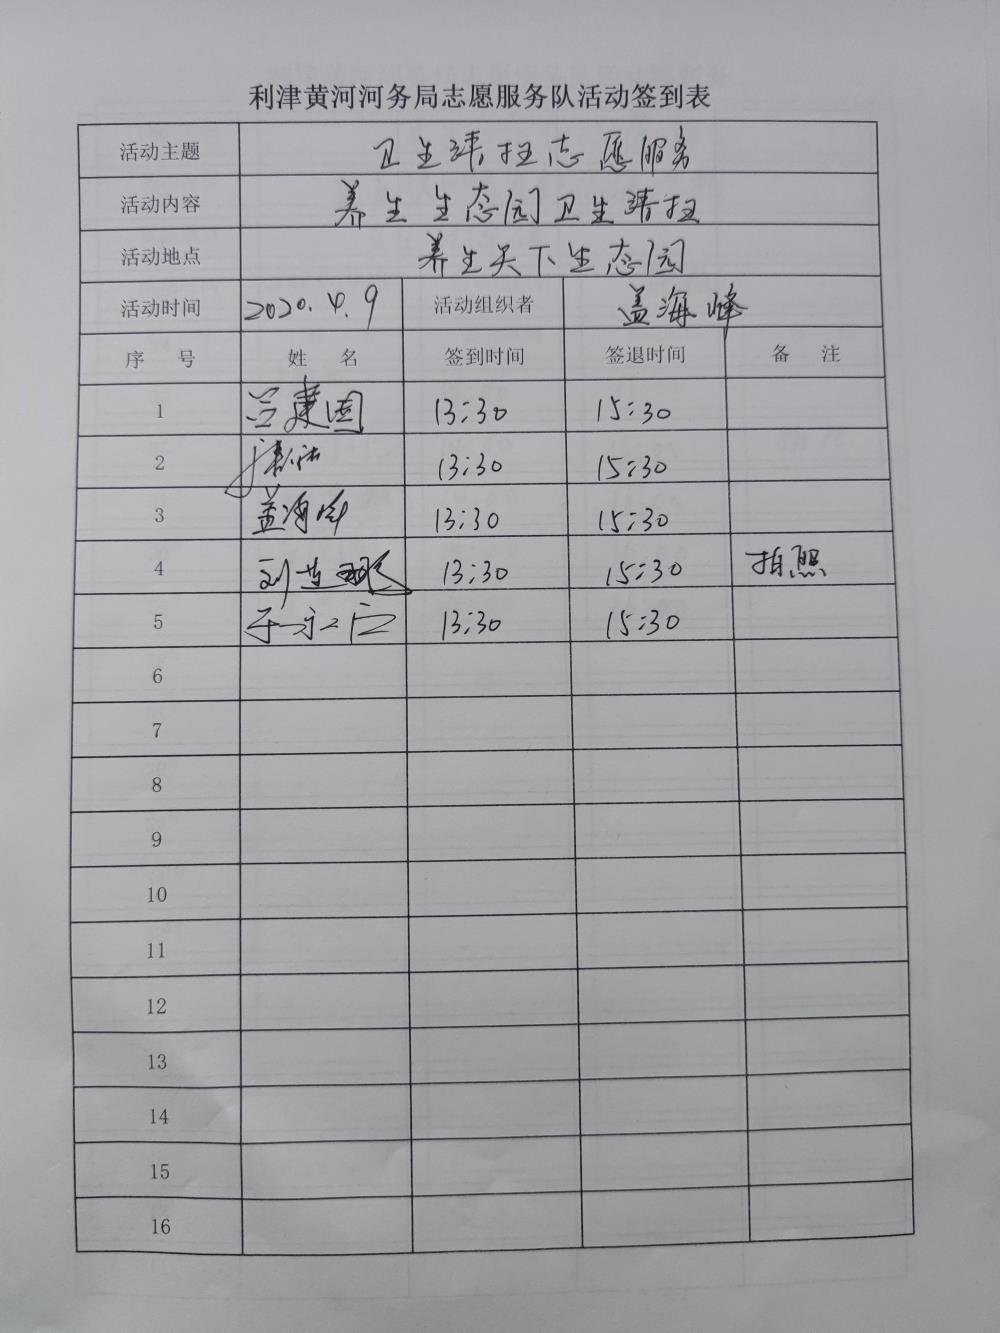 利津黄河河务局志愿服务队活动签到表
活动主题 卫生清扫志愿服务
活动内容 养生生态园卫生清扫
活动地点 养生天下生态园
活动时间 2020.4.9 活动组织者 盖海峰
序 号 姓 名 签到时间 签退时间 备 注
1 吕建国 13:30 15:30
2 13:30 15:30
3 盖海峰 13:30 15:30
4 13:30 15:30 拍照
5 13:30 15:30
6
7
8
9
10
11
12
13
14
15
16